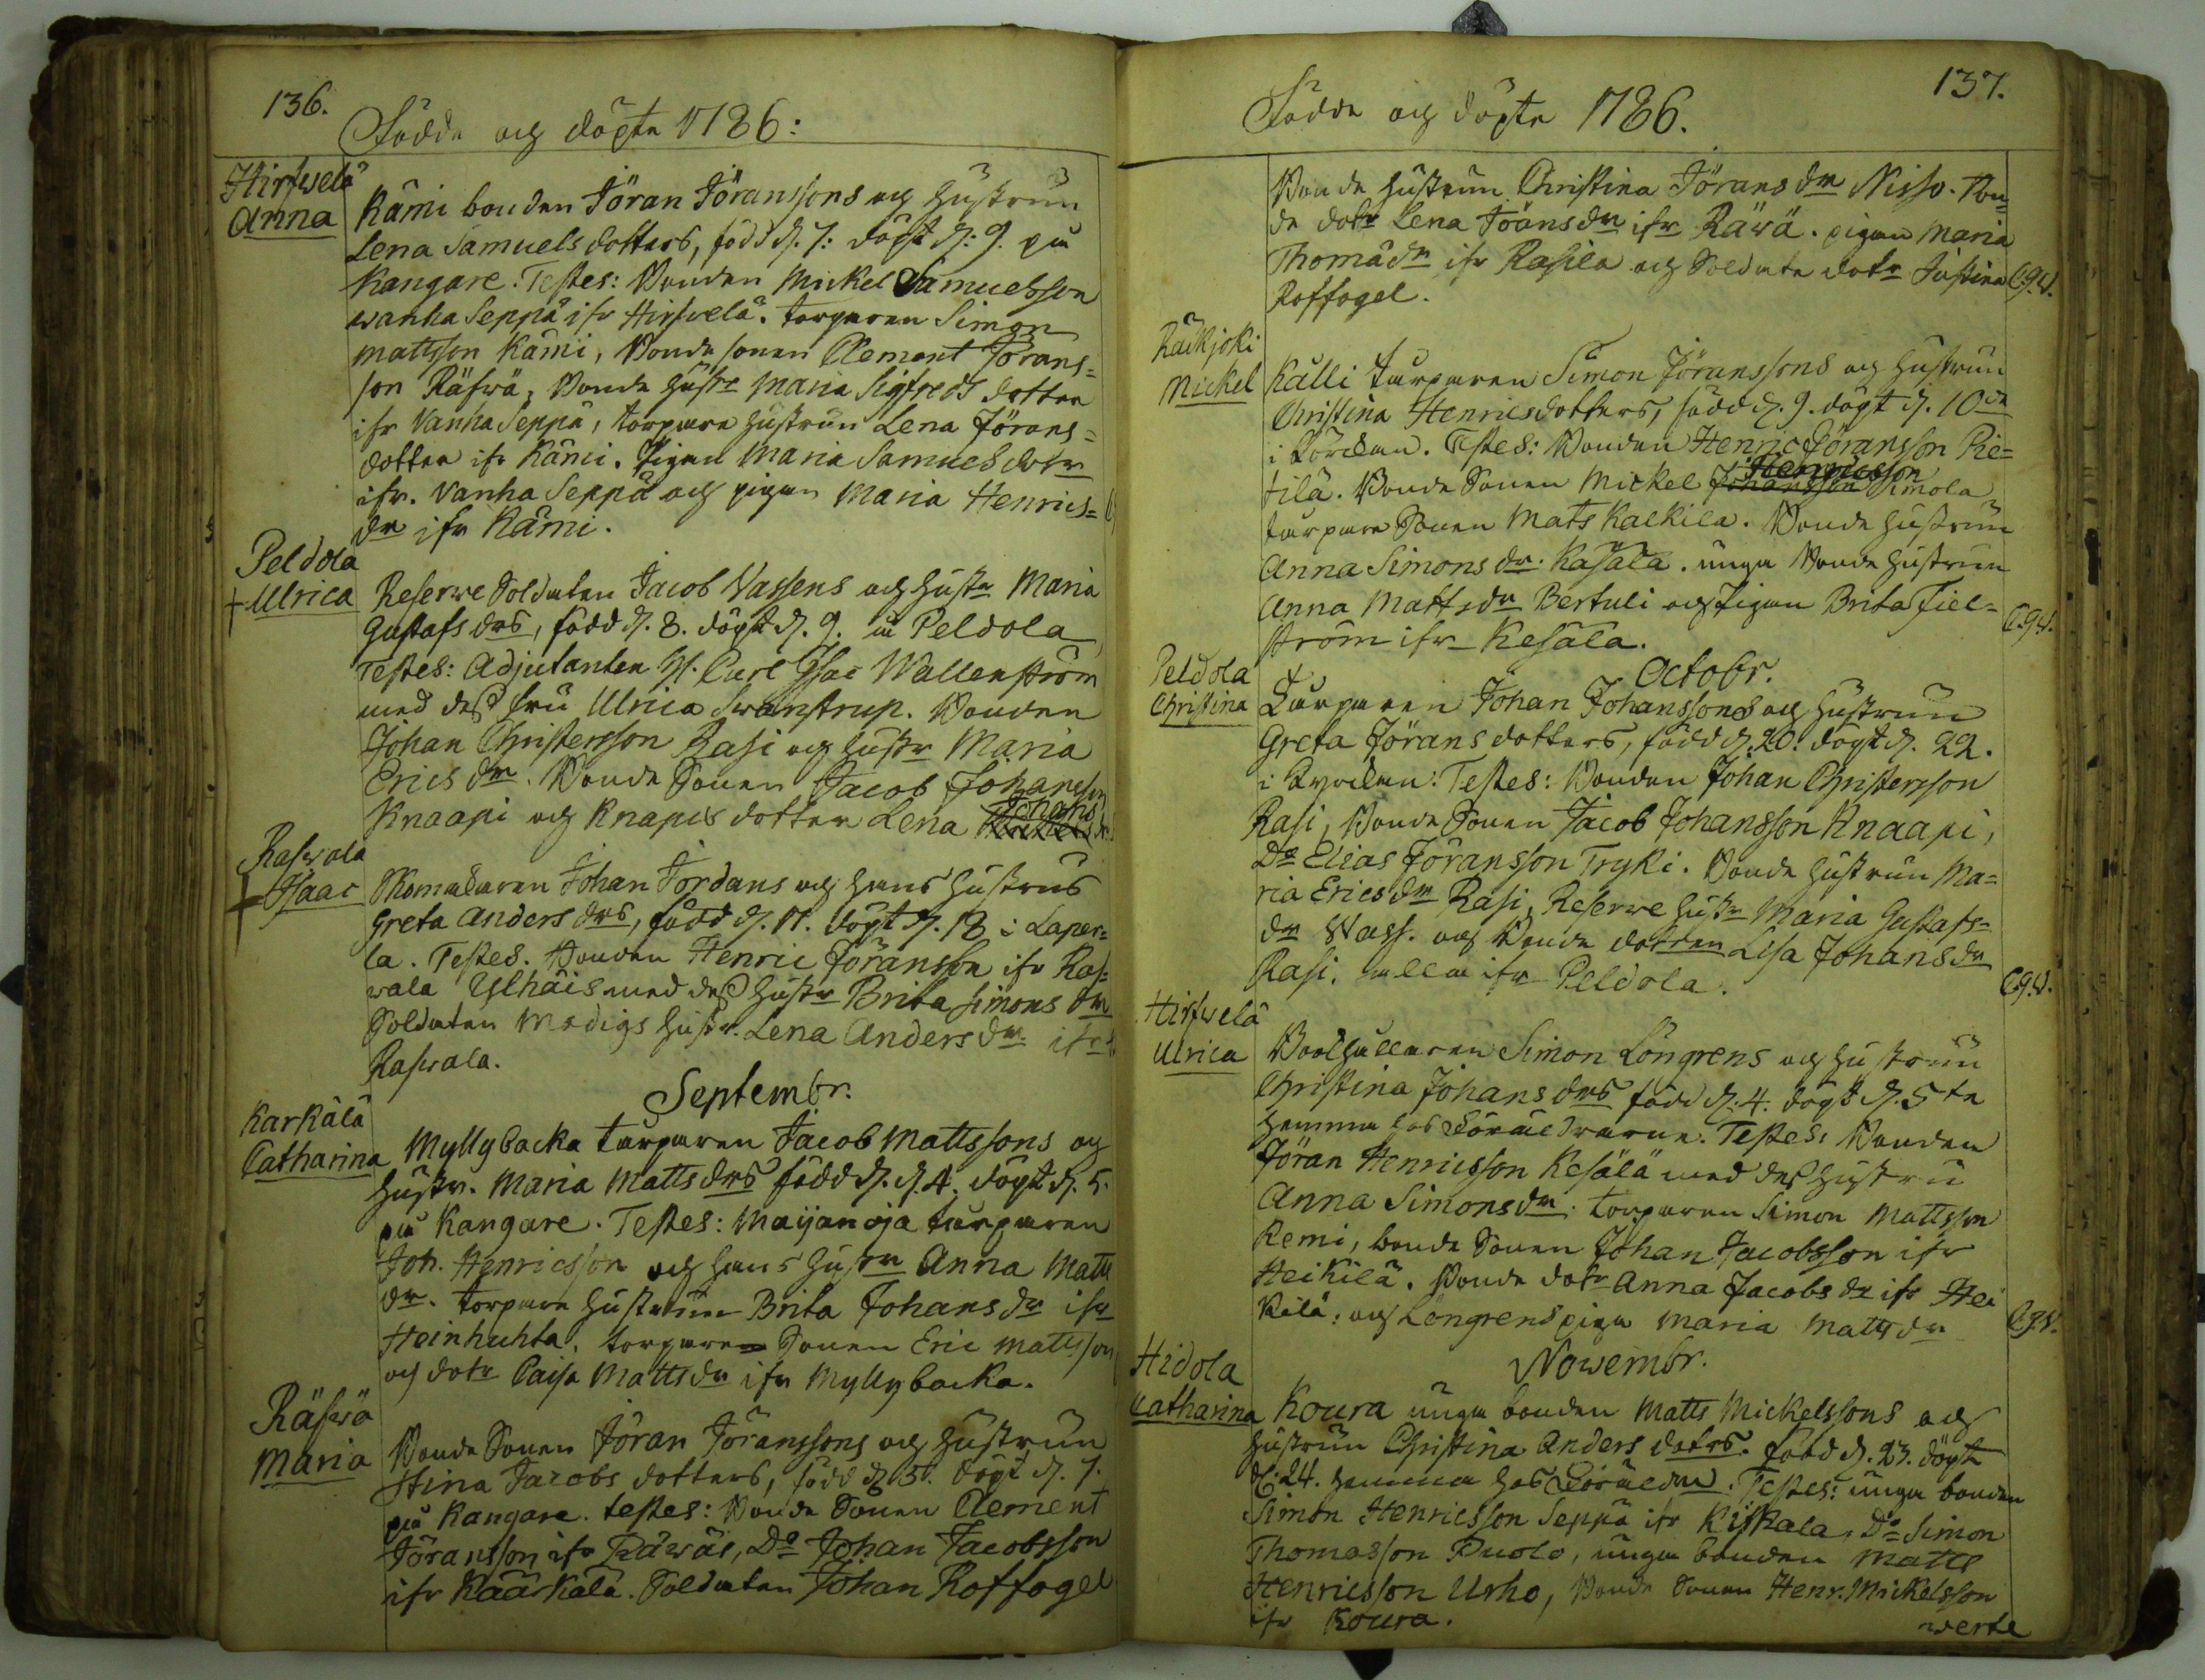 136.
Födde och döpte 1786:
Hirfwelä
Anna
Kämi bonden Jöran Jöranssons och hustrun
Lena Samuels dotters, född d. 7: döpt d: 9. på
Kangare. Testes: Bonden Mickel Samuelsson
wanha Seppä ifr Hirfvelä. torparen Simon
Mattsson Kämi, Bonde sonen Clement Jörans=
son Räfwä, Bonde hustr Maria Sigfreds dotter
ifr Vanha Seppä, torpare hustrun Lena Jörans=
dotter ifr Kämi. Pigan Maria Samuels dotr
ifr. Vanha Seppä och pigan Maria Henrics=
dr ifr Kämi.
Peldola
+ Ulrica
Reserwe Soldaten Jacob Vassens och hustr Maria
Gustafs drs, född d. 8. döpt d. 9. i Peldola
Testes: Adjutanten H. Carl Isac Wallenström
med dess fru Ulrica Swanstrup. Bonden
Johan Christersson Rasi och hustr Maria
Erics dr. Bonde Sonen Jacob Johansson
Knaapi och Knapes dotter Lena Johans dr
Raswala
+ Isaac
Skomakaren Johan Jordans och hans hustrus
Greta Anders drs, född d. 11. döpt d. 18 i Laper=
la. Testes. Bonden Henric Jöransson ifr Ras=
wala Ylhäis med dess hustr Brita Simons dr
Soldaten Modigs hustr. Lena Anders dr. ifr
Raswala.
Septembr.
Karkälä
Catharina
Myllybacka torparen Jacob Mattssons och
hustr. Maria Matts drs född d. d. 4. döpt d. 5.
på Kangare. Testes: Maijanoja torparen
Joh. Henricsson och hans hustr Anna Matts
dr. torpare hustrun Brita Johans dr ifr
Heinhuhta. torpare Sonen Eric Mattsson
och dotr Caisa Matts dr ifr Myllybacka.
Räfwä
Maria
Bonde Sonen Jöran Jöranssons och hustrun
Stina Jacobs dotters, född d 5. döpt d. 7.
på Kangare. testes: Bonde Sonen Clement
Jöransson ifr Räwäs, Do Johan Jacobsson
ifr Käärkälä. Soldaten Johan Roffogel
137.
Födde och döpte 1786.
Bonde hustrun Christina Jörans dr Nisso. Bon=
de dotr Lena Jöans dr ifr Räwä. pigan Maria
Thomädr ifr Rasila och Soldate dotr Justina C.g.W.
Roffogel.
Räckjoki
Mickel
Källi torparen Simon Jöranssons och hustrun
Christina Henrics dotters, född d. 9. döpt d. 10de
i Körckan. Testes: Bonden Henric Jöransson Pie=
tilä. Bonde Sonen Mickel Johansson Henricsson Simola
torpare Sonen Mats Kalkila. Bonde hustrun
Anna Simons dr. Kasala. unga Bonde hustrun
Anna Matts dr Bertuli och Pigan Brita Fiel=
ström ifr Kesälä. C.g.W.
Octobr.
Peldola
Christina
Torparen Johan Johanssons och hustrun
Greta Jörans dotters, född d. 20. döpt d. 22.
i Kyrckan: Testes: Bonden Johan Christersson
Rasi, Bonde Sonen Jacob Johansson Knaapi,
Do Elias Jöransson Tryki. Bonde hustrun Ma=
ria Erics dr Rasi, Reserwe hustr Maria Gustafs=
dr Wass. och Bonde dotter Lisa Johans dr
Rasi. alla ifr Peldola. C.g.W.
Hirfwelä
Ulrica
Bolhållaren Simon Löngrens och hustrun
Christina Johans drs född d. 4. döpt d. 5te
hemma hos Föräldrarne. Testes: Bonden
Jöran Henricsson Kesälä med dess hustru
Anna Simons dr. torparen Simon Mattsson
Kemi, bonde Sonen Johan Jacobsson ifr
Heikilä. Bonde dotr Anna Jacobs dr ifr Hei
kilä: och Löngrens piga Maria Matts dr C.g.W.
Nowembr.
Hidola
Catharina
Koura unga bonden Matts Mickelssons och
hustrun Christina Anders dotrs. född d. 23. döpt
d. 24. hemma hos Föräldr. Testes: unga bonden
Simon Henricsson Seppä ifr Kiskala, Do Simon
Thomasson Puolo, unga bonden Matts
Henricsson Urho, Bonde Sonen Henr. Mickelsson
ifr Koura.
werte